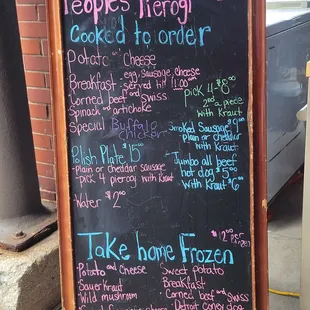 Peoples Pierogi
Cooked to order
Potato and Cheese
Breakfast egg, Sausage, cheese
served till 11:00
Corned beef and Swiss
Spinach and artichoke
Special Buffalo chicken
pick 4-$8.00
2.00 a piece
with Kraut
Polish Plate $15.00
-Plain or cheddar sausage
-pick 4 pierogi with Kraut
Water $2.00
Smoked Sausage
plain or cheddar
with Kraut
Jumbo all beef
hot dog $5.00
with Kraut $6.00
Take home Frozen
$12.00 per dozen
Potato and Cheese
Sauerkraut
Wild mushroom
Sweet potato
Breakfast
Corned beef and Swiss
Detroit coney dog